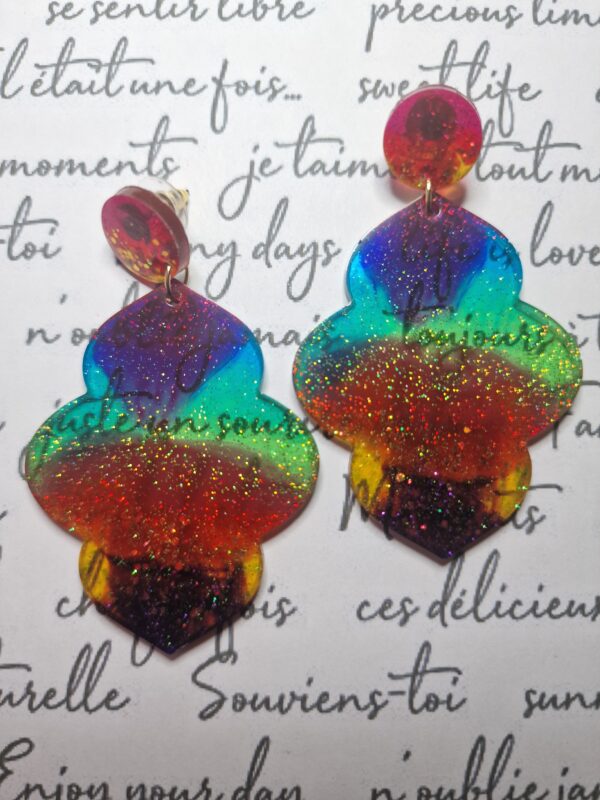 se sentir libre precious time
il était une fois... sweet life
moments je t'aime tout m
-toi my days life is love
n'oublie jamais toujours à t
juste un souri
M ts
ch fois ces délicieux
urelle Souviens-toi sunn
Enjoy your day n'oublie jam